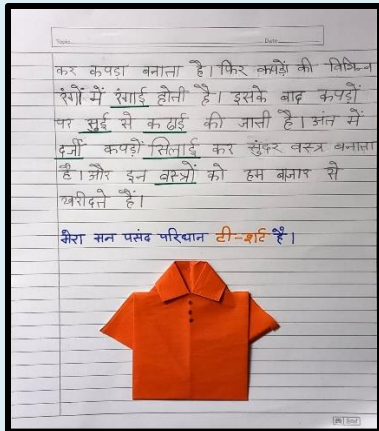 Topic Date
कर कपड़ा बनाता है। फिर कपड़ों की विभिन्न
रंगों में रंगाई होती है। इसके बाद कपड़ों
पर सुई से कढाई की जाती है। अंत में
दर्जी कपड़ों सिलाई कर सुंदर वस्त्र बनाता
है। और इन वस्त्रों को हम बाजार से
खरीदते हैं।
मेरा मन पसंद परिधान टी-शर्ट है।